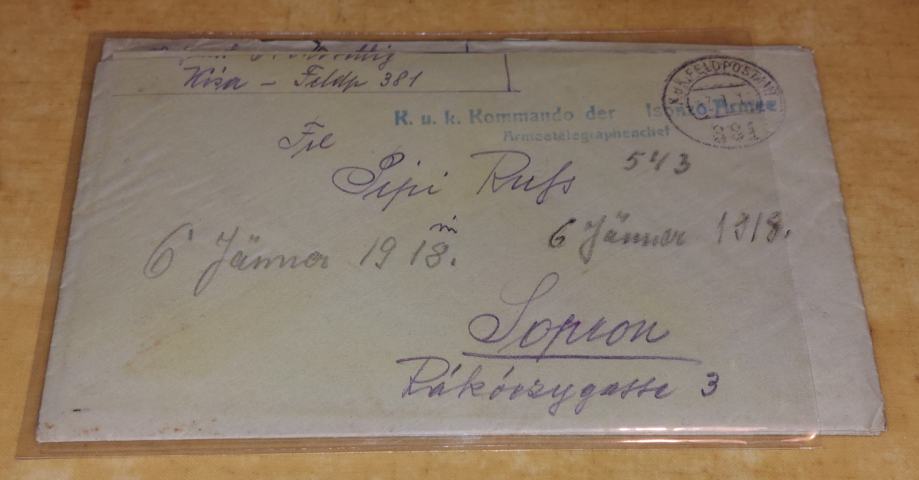 Kisa – Feldp 381
K. u. k. Kommando der Isonzo-Armee
Armeetelegraphenchef
K.u.K. FELDPOSTAMT
381
543
Frl
Pipi Russ
in
6 Jänner 1918.
6 Jänner 1918.
Sopron
Rákóczygasse 3